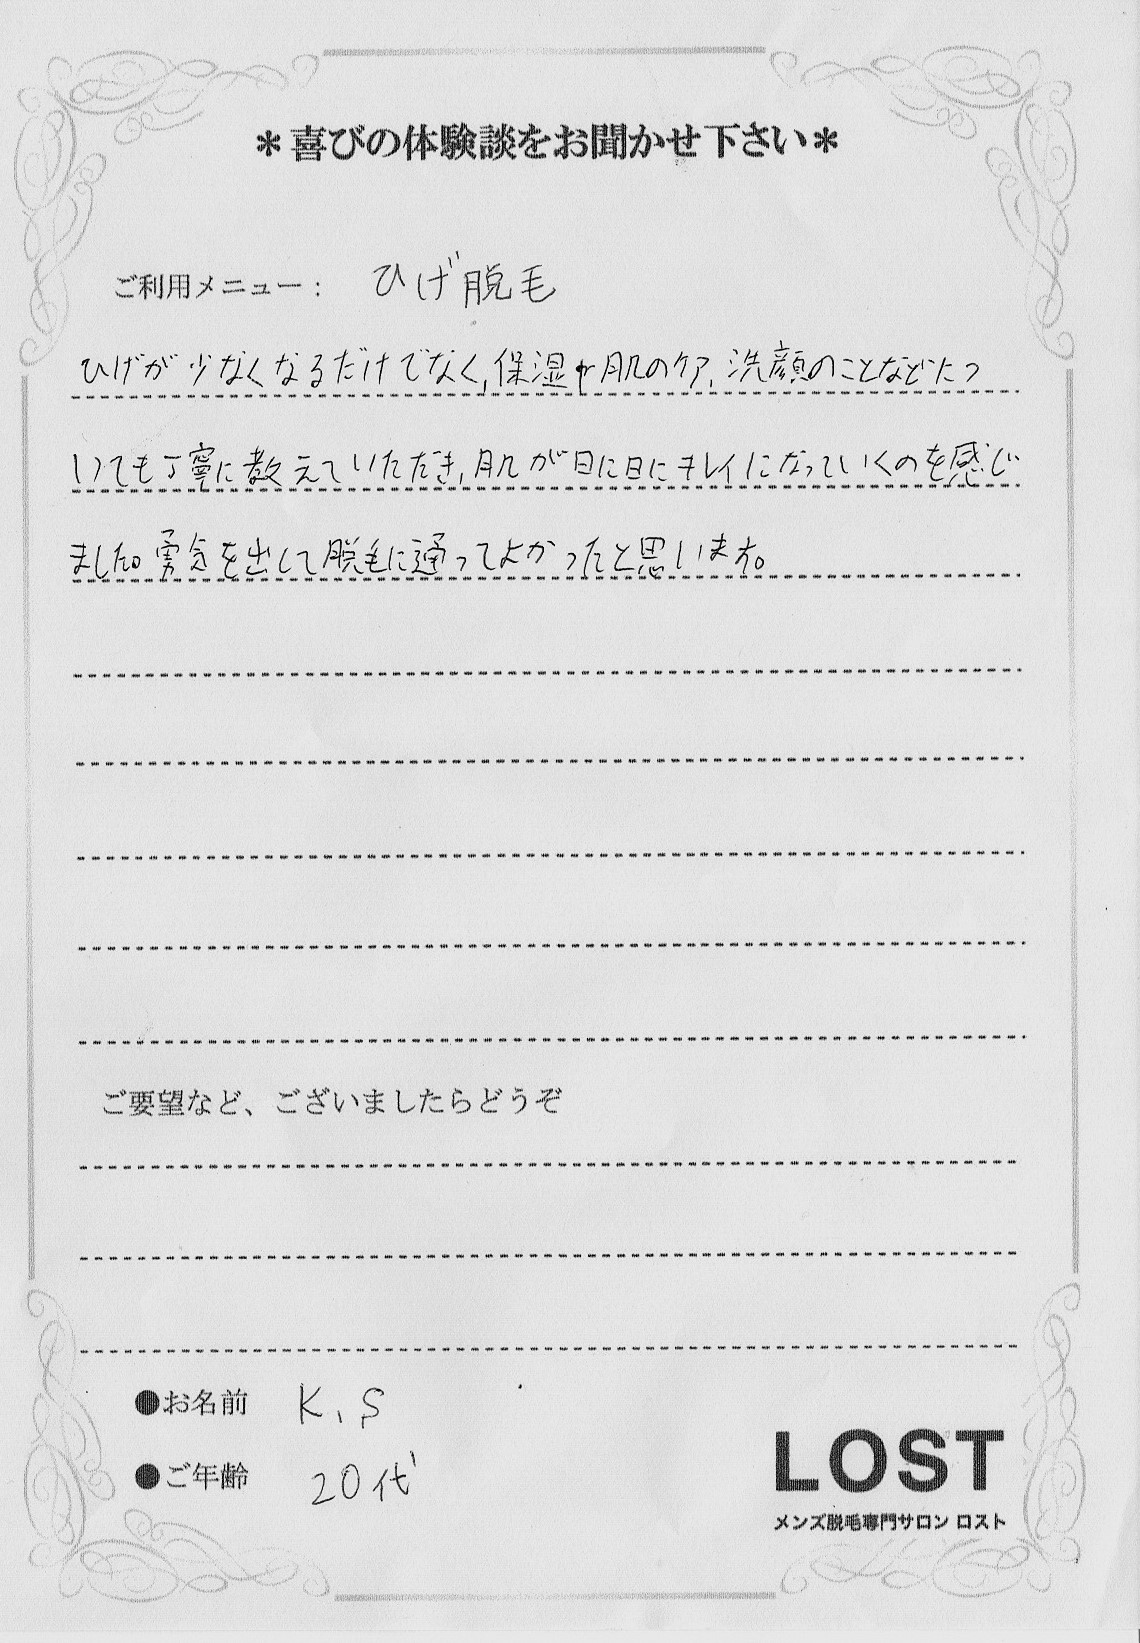 ＊喜びの体験談をお聞かせ下さい＊
ご利用メニュー： ひげ脱毛
ひげが少なくなるだけでなく,保湿や肌のケア,洗顔のことなどにつ
いても丁寧に教えていただき,肌が日に日にキレイになっていくのを感じ
ました。勇気を出して脱毛に通ってよかったと思います。
ご要望など、ございましたらどうぞ
●お名前 K.S
●ご年齢 20代
LOST
メンズ脱毛専門サロン ロスト